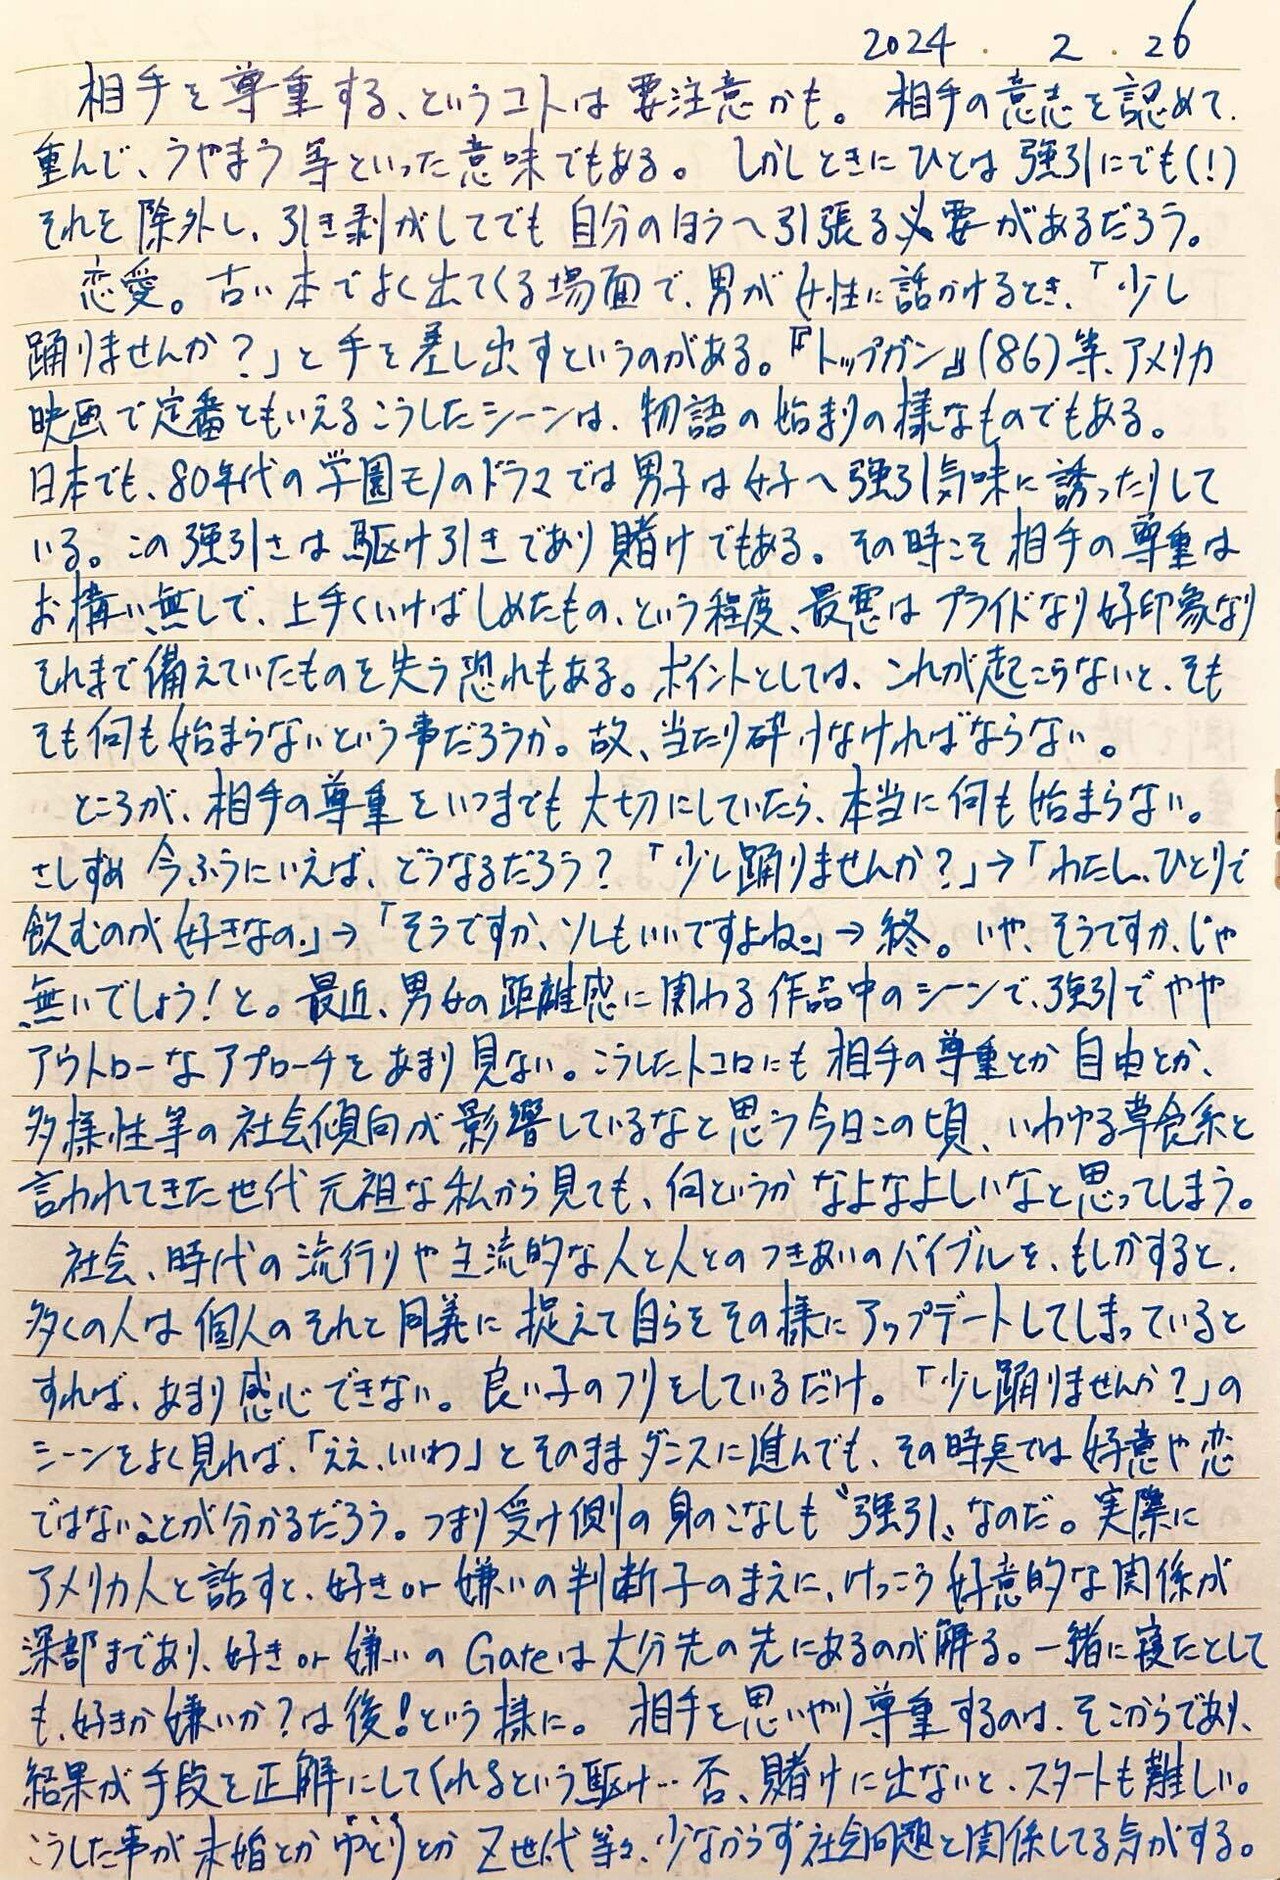 2024．2．26
相手を尊重する、というコトは要注意かも。相手の意志を認めて、
重んじ、うやまう等といった意味でもある。しかしときにひとは強引にでも(！)
それを除外し、引き剥がしてでも自分のほうへ引張る必要があるだろう。
恋愛。古い本でよく出てくる場面で、男が女性に話かけるとき、「少し
踊りませんか？」と手を差し出すというのがある。『トップガン』(86)等、アメリカ
映画で定番ともいえるこうしたシーンは、物語の始まりの様なものでもある。
日本でも、80年代の学園モノのドラマでは男子は女子へ強引気味に誘ったりして
いる。この強引さは駆け引きであり賭けでもある。その時こそ相手の尊重は
お構い無しで、上手くいけばしめたもの、という程度、最悪はプライドなり好印象なり
それまで備えていたものを失う恐れもある。ポイントとしては、これが起こらないと、そも
そも何も始まらないという事だろうか。故、当たり砕けなければならない。
ところが、相手の尊重をいつまでも大切にしていたら、本当に何も始まらない。
さしずめ今ふうにいえば、どうなるだろう？「少し踊りませんか？」→「わたし、ひとりで
飲むのが好きなの。」→「そうですか、ソレもいいですよね。」→終。いや、そうですか、じゃ
無いでしょう！と。最近、男女の距離感に関わる作品中のシーンで、強引でやや
アウトローなアプローチをあまり見ない。こうしたトコロにも相手の尊重とか自由とか、
多様性等の社会傾向が影響しているなと思う今日この頃、いわゆる草食系と
言われてきた世代元祖な私から見ても、何というかなよなよしいなと思ってしまう。
社会、時代の流行りや主流的な人と人とのつきあいのバイブルを、もしかすると、
多くの人は個人のそれと同義に捉えて自らをその様にアップデートしてしまっていると
すれば、あまり感心できない。良い子のフリをしているだけ。「少し踊りませんか？」の
シーンをよく見れば、「ええ、いいわ」とそのままダンスに進んでも、その時点では好意や恋
ではないことが分かるだろう。つまり受け側の身のこなしも〝強引〟なのだ。実際に
アメリカ人と話すと、好きor嫌いの判断子のまえに、けっこう好意的な関係が
深部まであり、好きor嫌いのGateは大分先の先にあるのが解る。一緒に寝たとして
も、好きか嫌いか？は後！という様に。相手を思いやり尊重するのは、そこからであり、
結果が手段を正解にしてくれるという駆け…否、賭けに出ないと、スタートも難しい。
こうした事が未婚とかゆとりとかZ世代等々、少なからず社会問題と関係してる気がする。